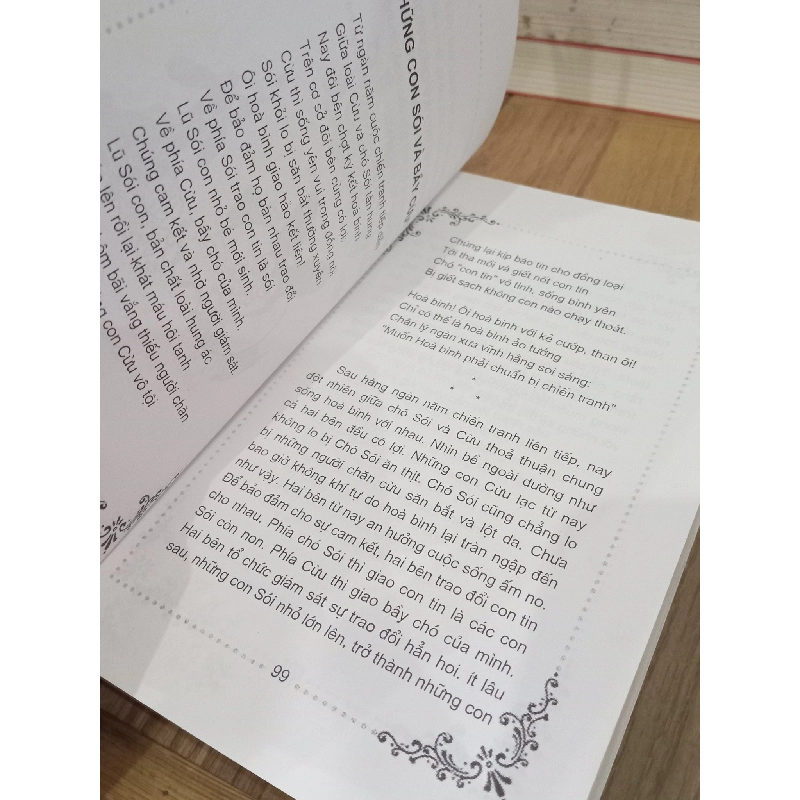 HỮNG CON SÓI VÀ BẦY
Từ ngàn năm cuộc chiến tranh tiếp
Giữa loài Cừu và chó Sói tàn hung
Nay đôi bên chợt ký kết hoà bình
Trên cơ sở đôi bên cùng có lợi
Cừu thì sống yên vui trong đồng nội
Sói khỏi lo bị săn bắt thường xuyên
Ôi hoà bình giao hảo kết liên!
Để bảo đảm họ bàn nhau trao đổi
Về phía Sói trao con tin là sói
Lũ Sói con nhỏ bé mới sinh
Về phía Cừu, bầy chó của mình.
Chúng cam kết và nhờ người giám sát.
Lũ Sói con, bản chất loài hung ác
lên rồi lại khát máu hôi tanh
bãi vắng thiếu người chăn
con Cừu vô tội
Chúng lại kịp báo tin cho đồng loại
Tới tha mồi và giết nốt con tin
Chó "con tin" vô tình, sống bình yên
Bị giết sạch không con nào chạy thoát.
Hoà bình! Ôi hoà bình với kẻ cướp, than ôi!
Chỉ có thể là hoà bình ảo tưởng
Chân lý ngàn xưa vĩnh hằng soi sáng:
"Muốn Hoà bình phải chuẩn bị chiến tranh"
*
* *
Sau hàng ngàn năm chiến tranh liên tiếp, nay
đột nhiên giữa chó Sói và Cừu thoả thuận chung
sống hoà bình với nhau. Nhìn bề ngoài dường như
cả hai bên đều có lợi. Những con Cừu lạc từ nay
không lo bị Chó Sói ăn thịt. Chó Sói cũng chẳng lo
bị những người chăn cừu săn bắt và lột da. Chưa
bao giờ không khí tự do hoà bình lại tràn ngập đến
như vậy. Hai bên từ nay an hưởng cuộc sống ấm no.
Để bảo đảm cho sự cam kết, hai bên trao đổi con tin
cho nhau. Phía chó Sói thì giao con tin là các con
Sói còn non. Phía Cừu thì giao bầy chó của mình.
Hai bên tổ chức giám sát sự trao đổi hẳn hoi. ít lâu
sau, những con Sói nhỏ lớn lên, trở thành những con
99